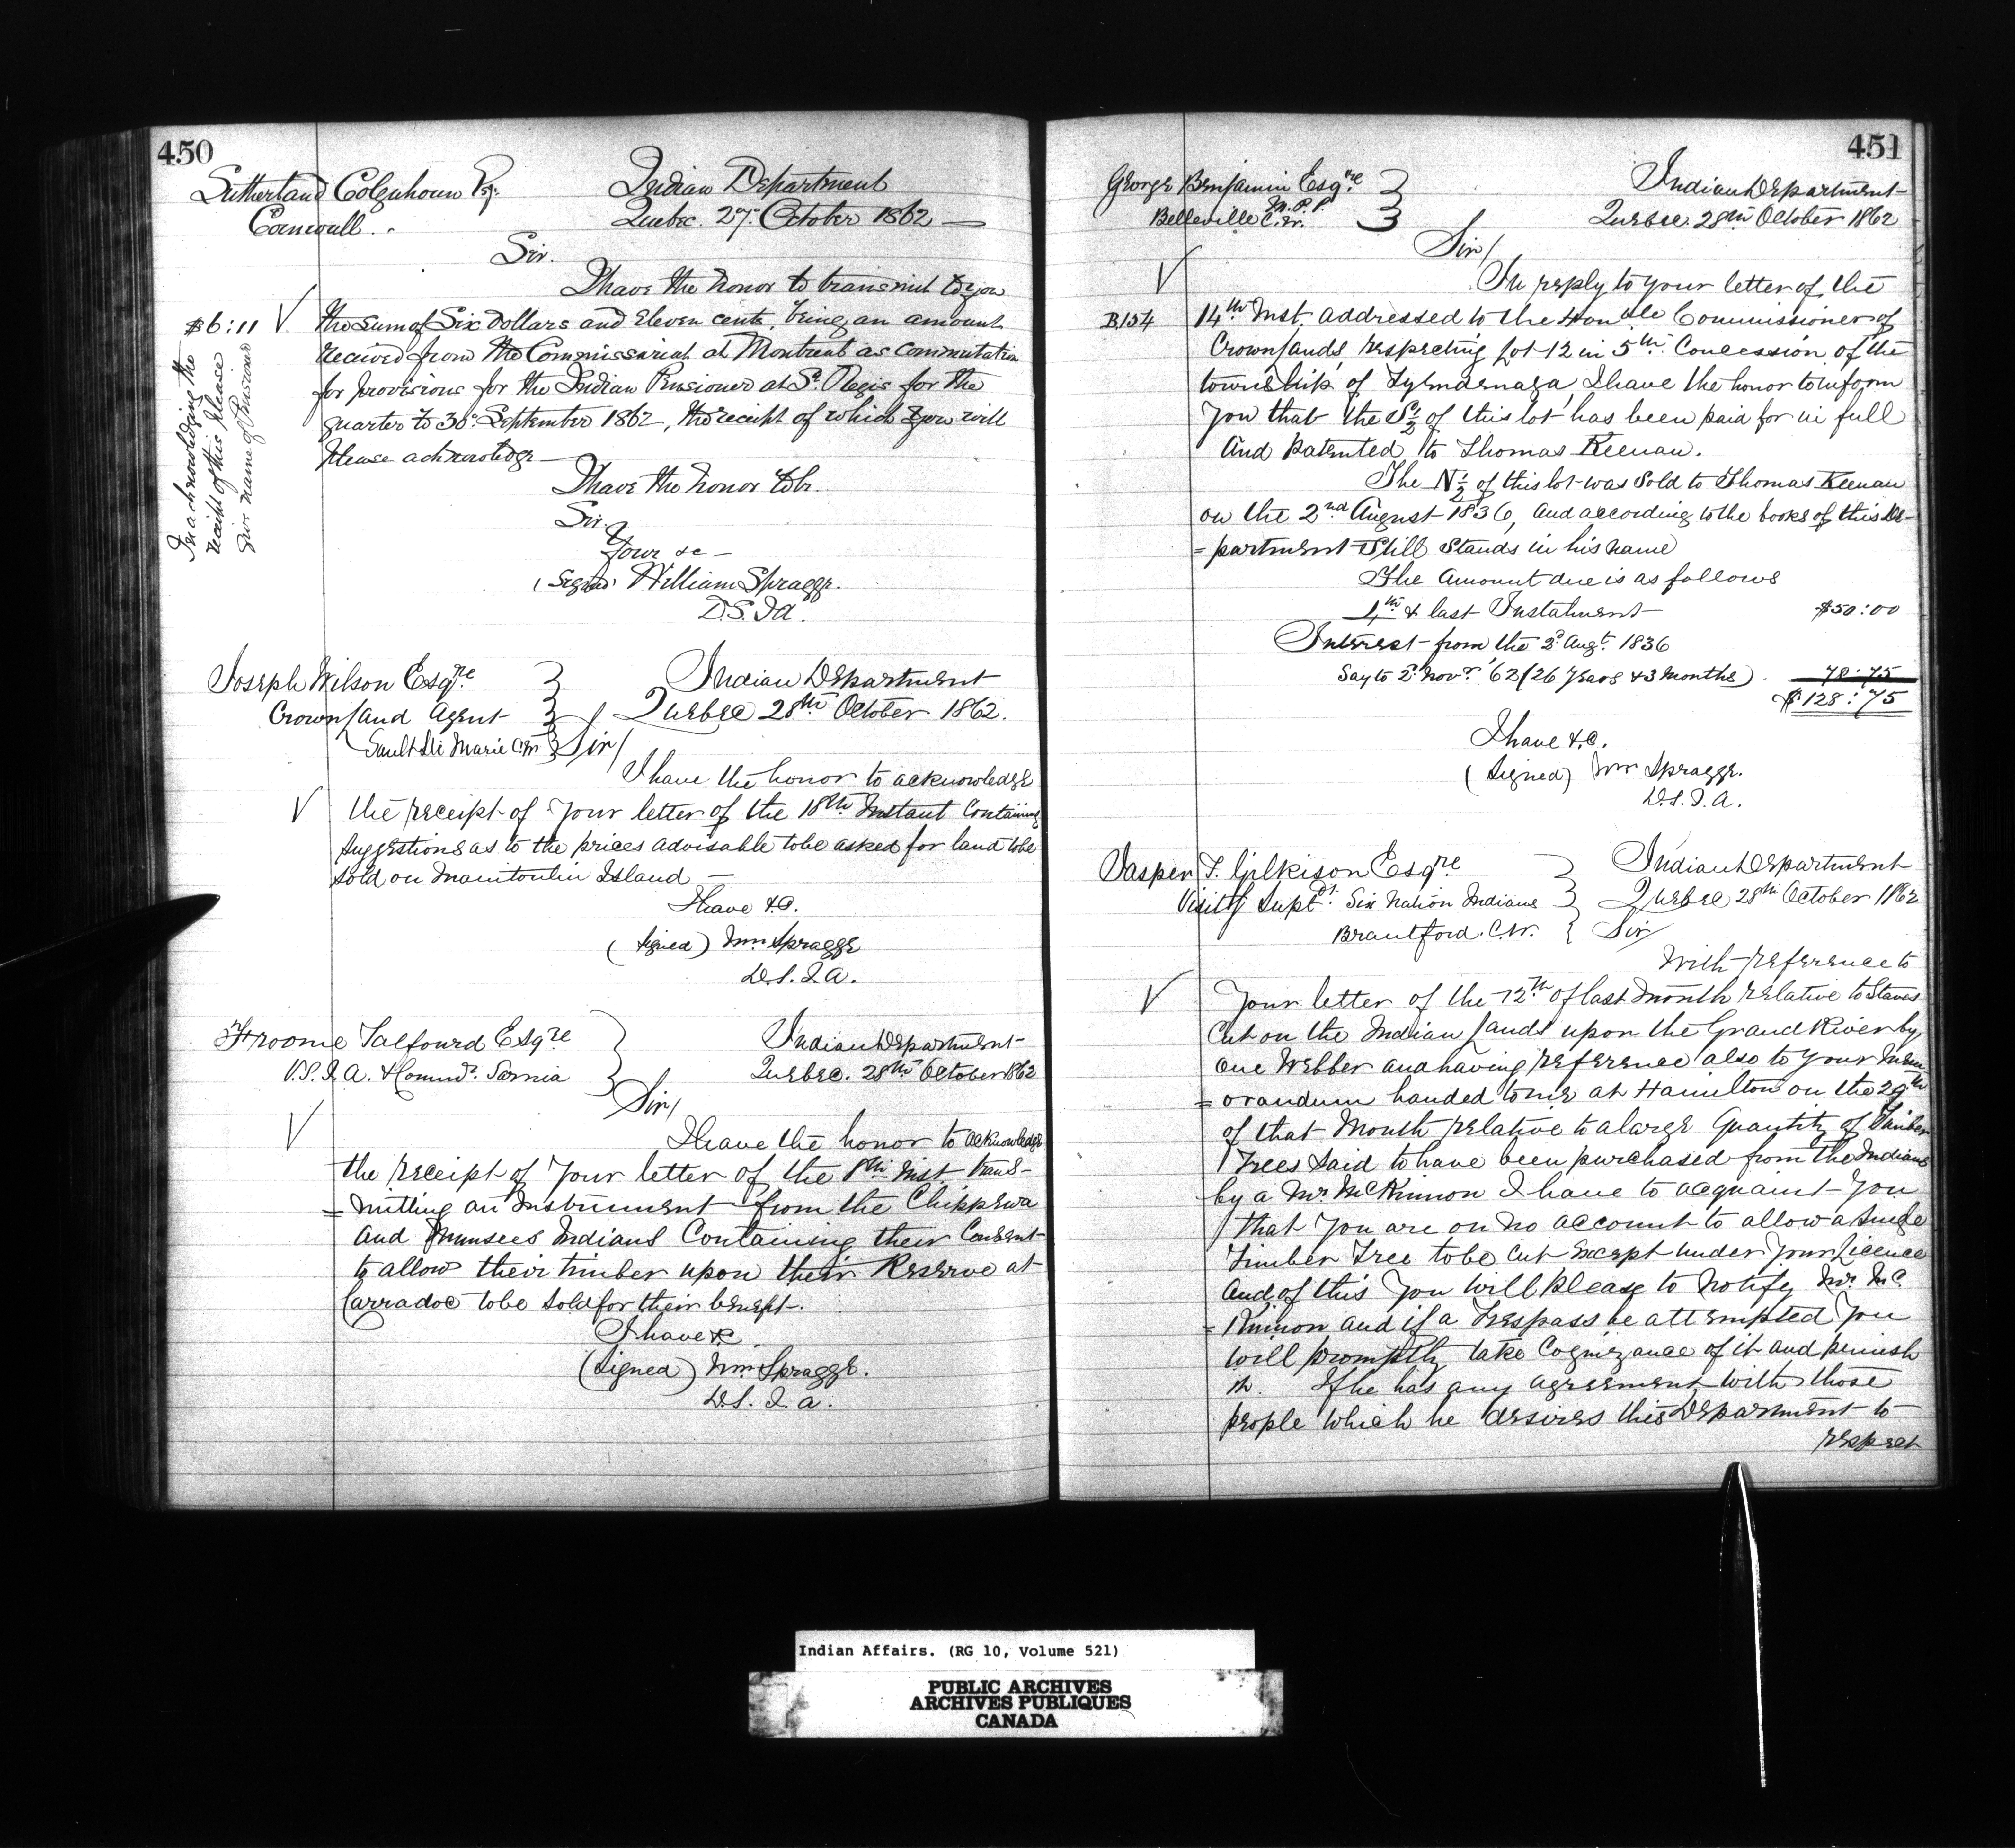 450
Sutherland Colquhoun Esq.
Cornwall.
Indian Department
Quebec. 27. October 1862
Sir.
I have the honor to transmit to you
$6:11 the sum of Six Dollars and Eleven cents, being an amount
received from the Commissariat at Montreal as commutation
for provisions for the Indian Pensioner at St. Regis for the
quarter to 30. September 1862, the receipt of which you will
please acknowledge
In acknowledging the
receipt of this please
give name of Pensioner
I have the honor to be.
Sir.
Your &c
(Signed) William Spragge.
D.S.I.A.
Joseph Wilson Esqre
Crown Land Agent
Sault Ste Marie C.W.
Indian Department
Quebec 28th October 1862.
Sir/
I have the honor to acknowledge
the receipt of your letter of the 18th Instant Containing
suggestions as to the prices advisable to be asked for land to be
sold on Manitoulin Island
I have &c.
(Signed) Wm Spragge
D.S.I.A.
Froome Talfourd Esqre
V.S.I.A. & Commr. Sarnia
Indian Department
Quebec. 28th October 1862
Sir/
I have the honor to acknowledge
the receipt of your letter of the 8th Inst. trans-
=mitting an Instrument from the Chippewa
and Munsees Indians Containing their Consent
to allow their timber upon their Reserve at
Carradoc to be sold for their benefit.
I have &c
(Signed) Wm Spragge.
D.S.I.A.
451
George Benjamin Esqre
M.P.P.
Belleville C.W.
Indian Department
Quebec. 28th October 1862
Sir/
In reply to your letter of the
B154 14th Inst. addressed to the Honble Commissioner of
Crown Lands respecting Lot 12 in 5th Concession of the
township of Tyendenaga, I have the honor to inform
you that the S 1/2 of this lot has been paid for in full
and patented to Thomas Keenan.
The N 1/2 of this lot was sold to Thomas Keenan
on the 2nd August 1836, and according to the books of this De-
=partment still stands in his name
The amount due is as follows
4th & last Instalment $50:00
Interest from the 2d Augt. 1836
Say to 2d Novr '62 (26 years & 3 months) 78:75
$128:75
I have &c.
(Signed) Wm Spragge.
D.S.I.A.
Jasper T. Gilkison Esqre
Visitg Supdt. Six Nation Indians
Brantford. C.W.
Indian Department
Quebec 28th October 1862
Sir
With reference to
your letter of the 12th of last month relative to Staves
cut on the Indian lands upon the Grand River by
one Webber and having reference also to your mem
=orandum handed to me at Hamilton on the 29th
of that Month relative to a large quantity of Timber
Trees said to have been purchased from the Indians
by a Mr. McKinnon I have to acquaint you
that you are on no account to allow a single
Timber Tree to be cut except under your licence
and of this you will please to notify Mr. Mc.
=Kinnon and if a trespass be attempted you
will promptly take cognizance of it and punish
it. If he has any agreement with those
people which he desires this Department to
respect
Indian Affairs. (RG 10, Volume 521)
PUBLIC ARCHIVES
ARCHIVES PUBLIQUES
CANADA